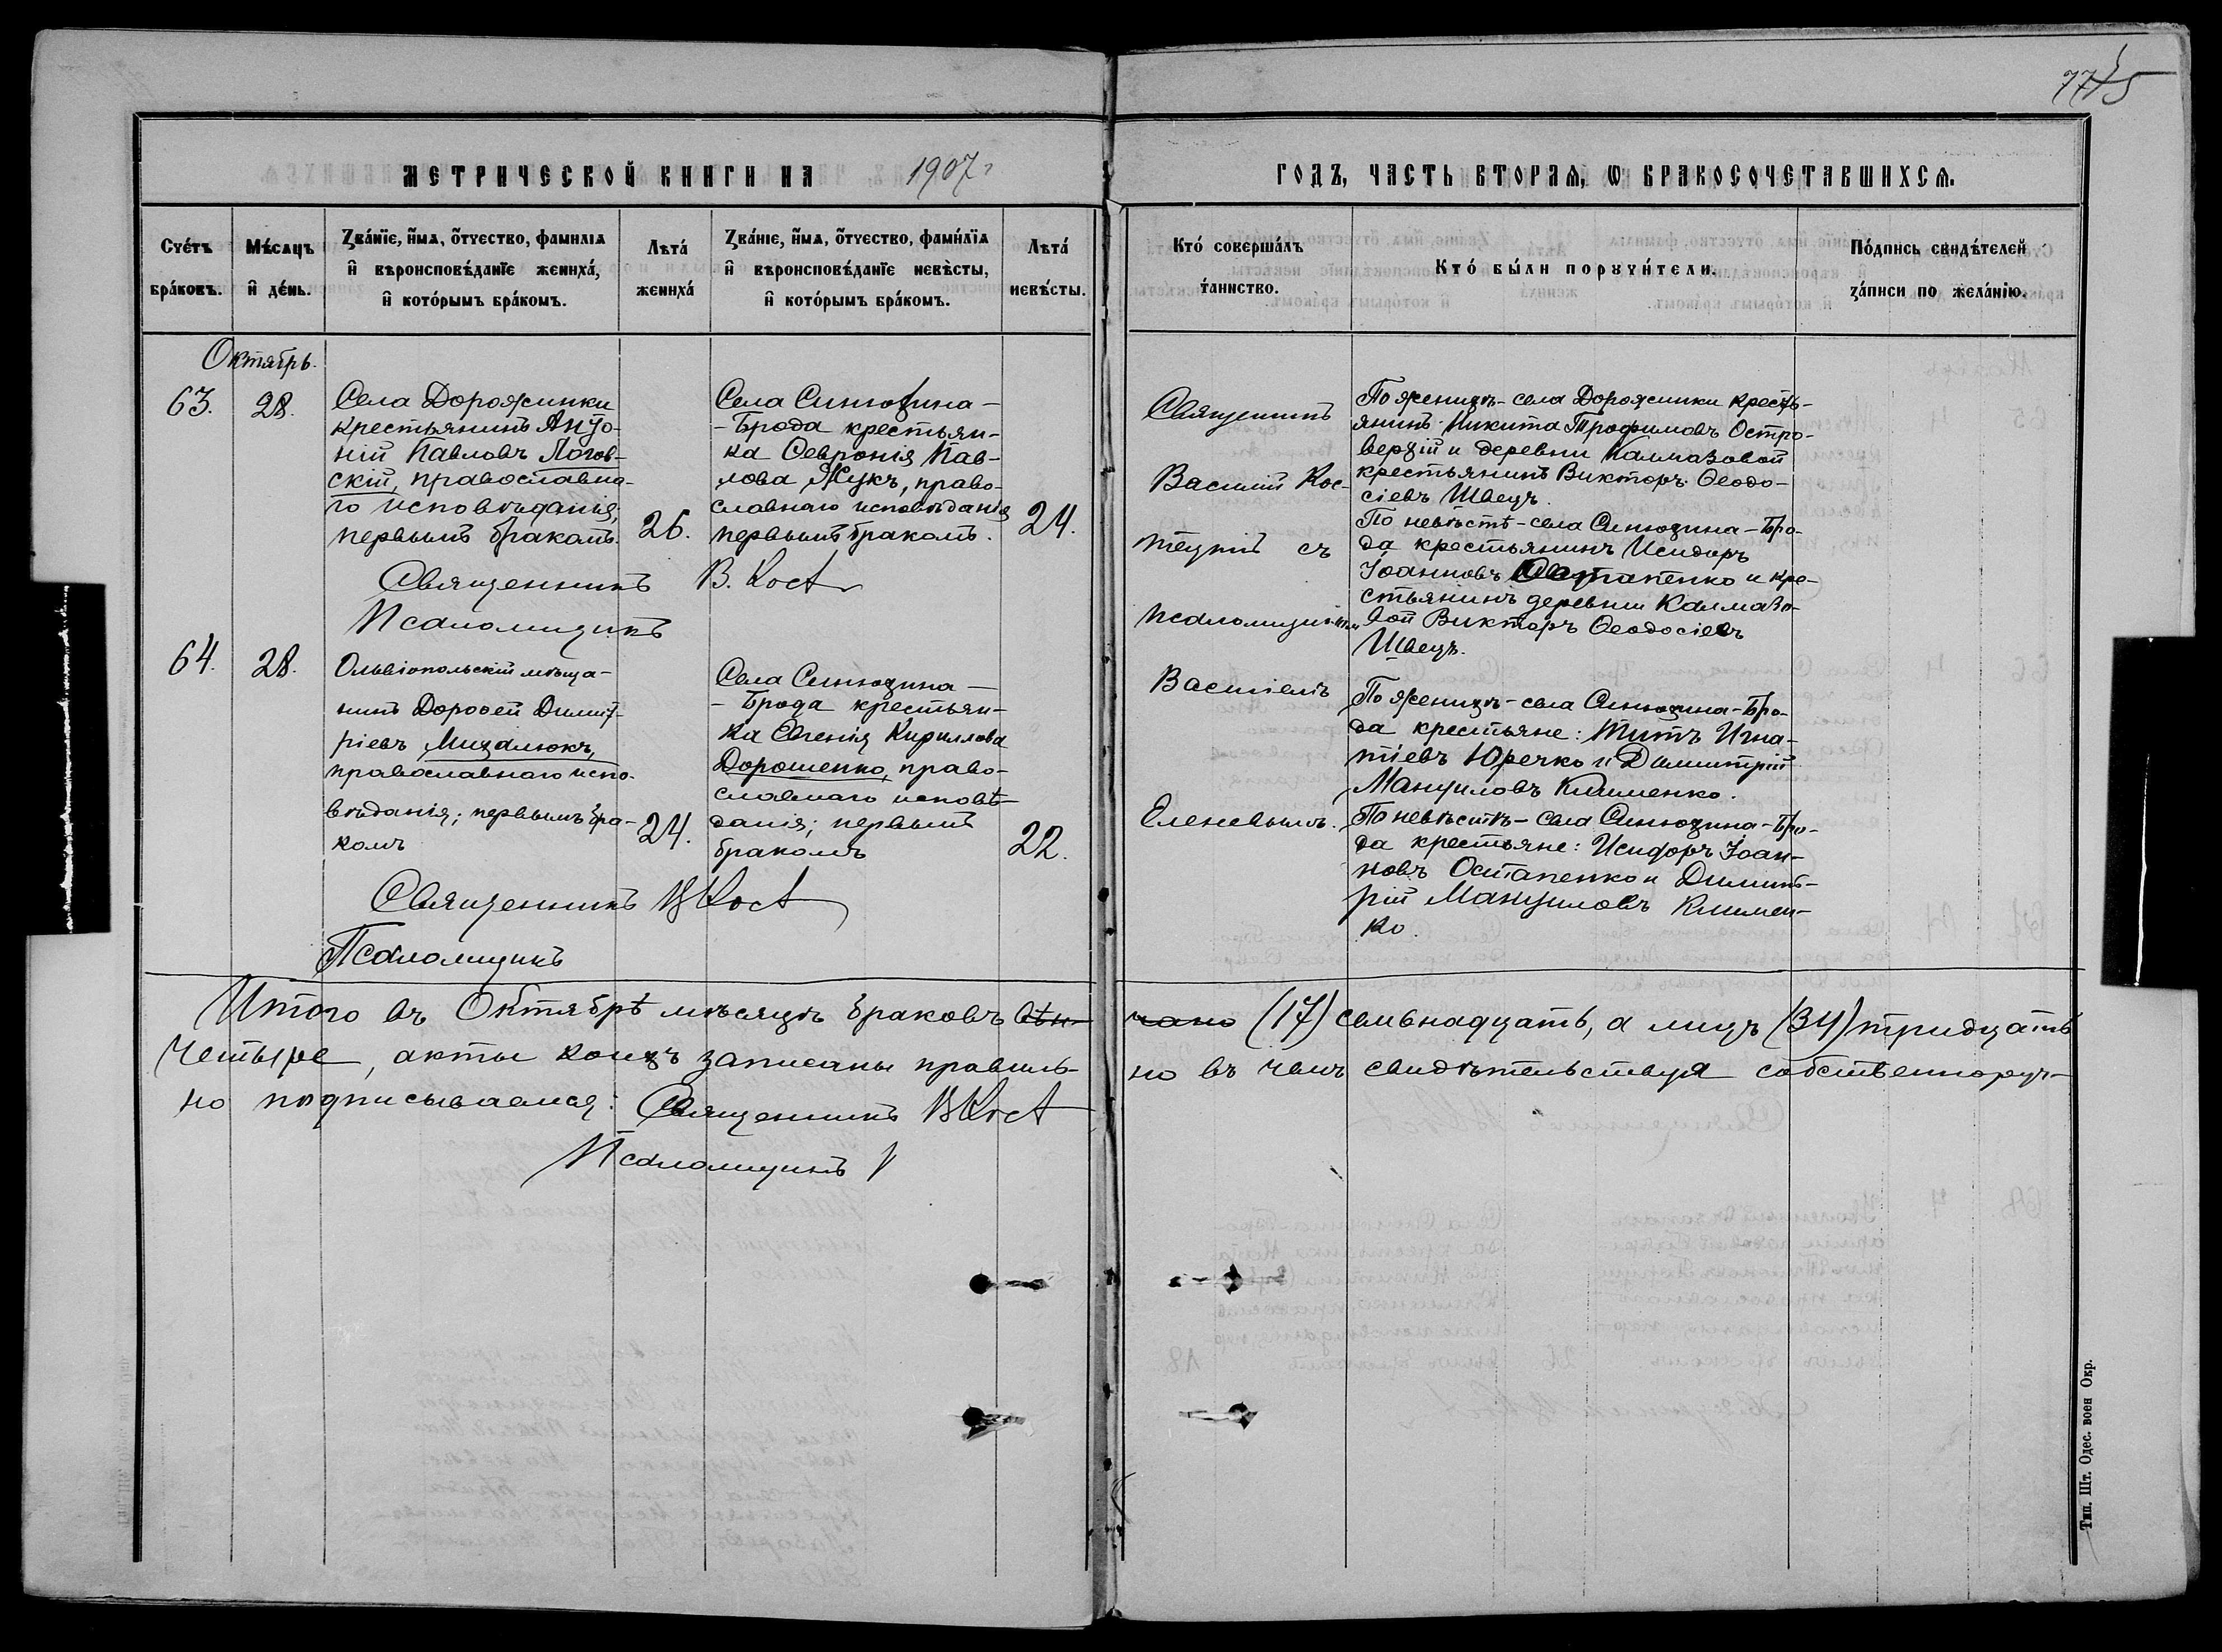 775
МЕТРИЧЕСКОЙ КНИГИ НА 1907 г
ГОДЪ, ЧАСТЬ ВТОРАЯ, Ѡ БРАКОСОЧЕТАВШИХСЯ.
Счетъ браковъ.
Мѣсяцъ и день.
Званіе, имя, отчество, фамилія
и вѣроисповѣданіе жениха,
и которымъ бракомъ.
Лѣта
жениха
Званіе, имя, отчество, фамилія
и вѣроисповѣданіе невѣсты,
и которымъ бракомъ.
Лѣта
невѣсты.
Кто совершалъ
таинство.
Кто были поручители.
Подпись свидѣтелей
записи по желанію.
Октябрь.
63.
28.
Села Дорожинки
крестьянинъ Анто-
ній Павловъ Логов-
скій, православна-
го исповѣданія;
первымъ бракомъ.
26.
Села Синюхина-
-Брода крестьян-
ка Февронія Пав-
лова Жукъ, право-
славнаго исповѣданія
первымъ бракомъ.
24.
Священникъ В. Кост
Псаломщикъ
Священникъ
Василій Кос-
тецкій съ
псаломщикомъ
Василіемъ
Еленевымъ.
По женихѣ - села Дорожинки кресть-
янинъ Никита Трофимовъ Остро-
верхій и деревни Калмазовой
крестьянинъ Викторъ Ѳеодо-
сіевъ Швецъ.
По невѣстѣ - села Синюхина-Бро-
да крестьянинъ Исидоръ
Іоанновъ Остапенко и кре-
стьянинъ деревни Калмазо-
вой Викторъ Ѳеодосіевъ
Швецъ.
64.
28.
Ольвіопольскій мѣща-
нинъ Дороѳей Димит-
ріевъ Михалюкъ,
православнаго испо-
вѣданія; первымъ бра-
комъ
24.
Села Синюхина-
-Брода крестьян-
ка Евгенія Кириллова
Дорошенко, право-
славнаго исповѣ-
данія; первымъ
бракомъ
22.
Священникъ В Кост
Псаломщикъ
По женихѣ - села Синюхина-Бро-
да крестьяне: Титъ Игна-
тіевъ Юречко и Димитрій
Мануиловъ Клименко.
По невѣстѣ - села Синюхина-Бро-
да крестьяне: Исидоръ Іоан-
новъ Остапенко и Димит-
рій Мануиловъ Климен-
ко.
Итого въ Октябрѣ мѣсяцѣ браковъ вѣн-чано (17) семьнадцать, а лицъ (34) тридцать
четыре, акты коихъ записаны правиль-но въ чемъ свидѣтельствуя собственноруч-
но подписываемся: Священникъ В Кост
Псаломщикъ
Тип. Шт. Одес. воен Окр.